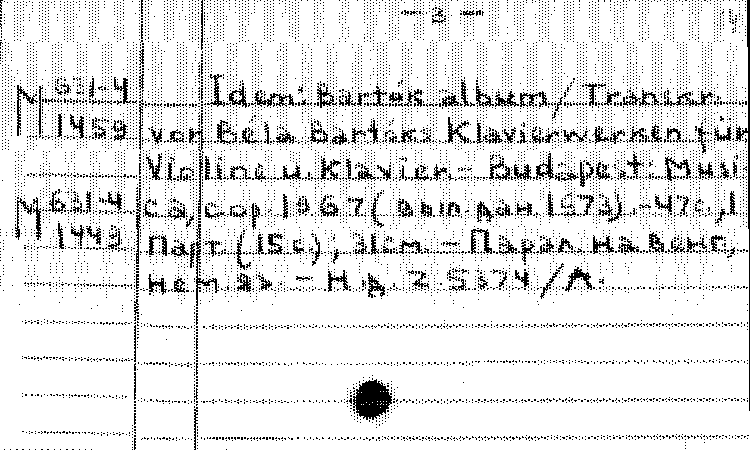 — 3 —
М 631-4
1459
Idem: Bartók album / Transkr.
von Béla Bartóks Klavierwerken für
Violine u. Klavier. – Budapest: Musi
М 631-4
1443
ca, cop. 1967 (вып. дан 1973). – 47с., 1
парт. (15 с); 31см – Парал на венг,
нем. яз. – Н. д. Z. 5374 / А.